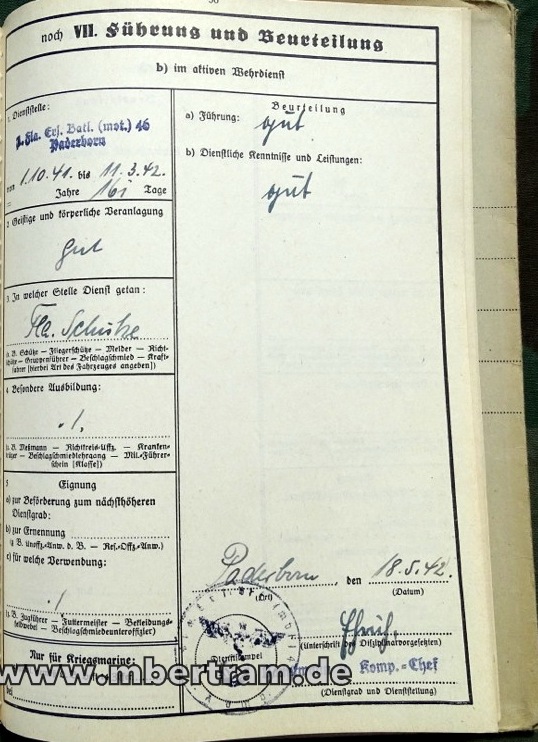 noch VII. Führung und Beurteilung
b) im aktiven Wehrdienst
1. Dienststelle:
2. Fla. Ers. Batl. (mot.) 46
Paderborn
von 1.10.41. bis 11.3.42.
= Jahre 161 Tage
2 Geistige und körperliche Veranlagung
gut
3. In welcher Stelle Dienst getan:
Fla. Schütze
(z. B. Schütze – Fliegerschütze – Melder – Richt-
schütze – Gruppenführer – Beschlagschmied – Kraft-
fahrer [hierbei Art des Fahrzeuges angeben])
4 Besondere Ausbildung:
./.
(z. B. Meßmann – Richtkreis-Uffz. – Kranken-
träger – Beschlagschmiedlehrgang – Mil.-Führer-
schein [Klasse])
5 Eignung
a) zur Beförderung zum nächsthöheren
Dienstgrad:
b) zur Ernennung
(z. B. Unoffz.-Anw. d. B. – Res.-Offz.-Anw.)
c) für welche Verwendung:
./.
(z. B. Zugführer – Futtermeister – Bekleidungs-
feldwebel – Beschlagschmiedeunteroffizier)
Nur für Kriegsmarine:
bei
Beurteilung
a) Führung:
gut
b) Dienstliche Kenntnisse und Leistungen:
gut
Paderborn, den 18.5.42.
(Ort) (Datum)
Dienststempel
(Unterschrift des Disziplinarvorgesetzten)
Komp.-Chef
(Dienstgrad und Dienststellung)
www.mbertram.de